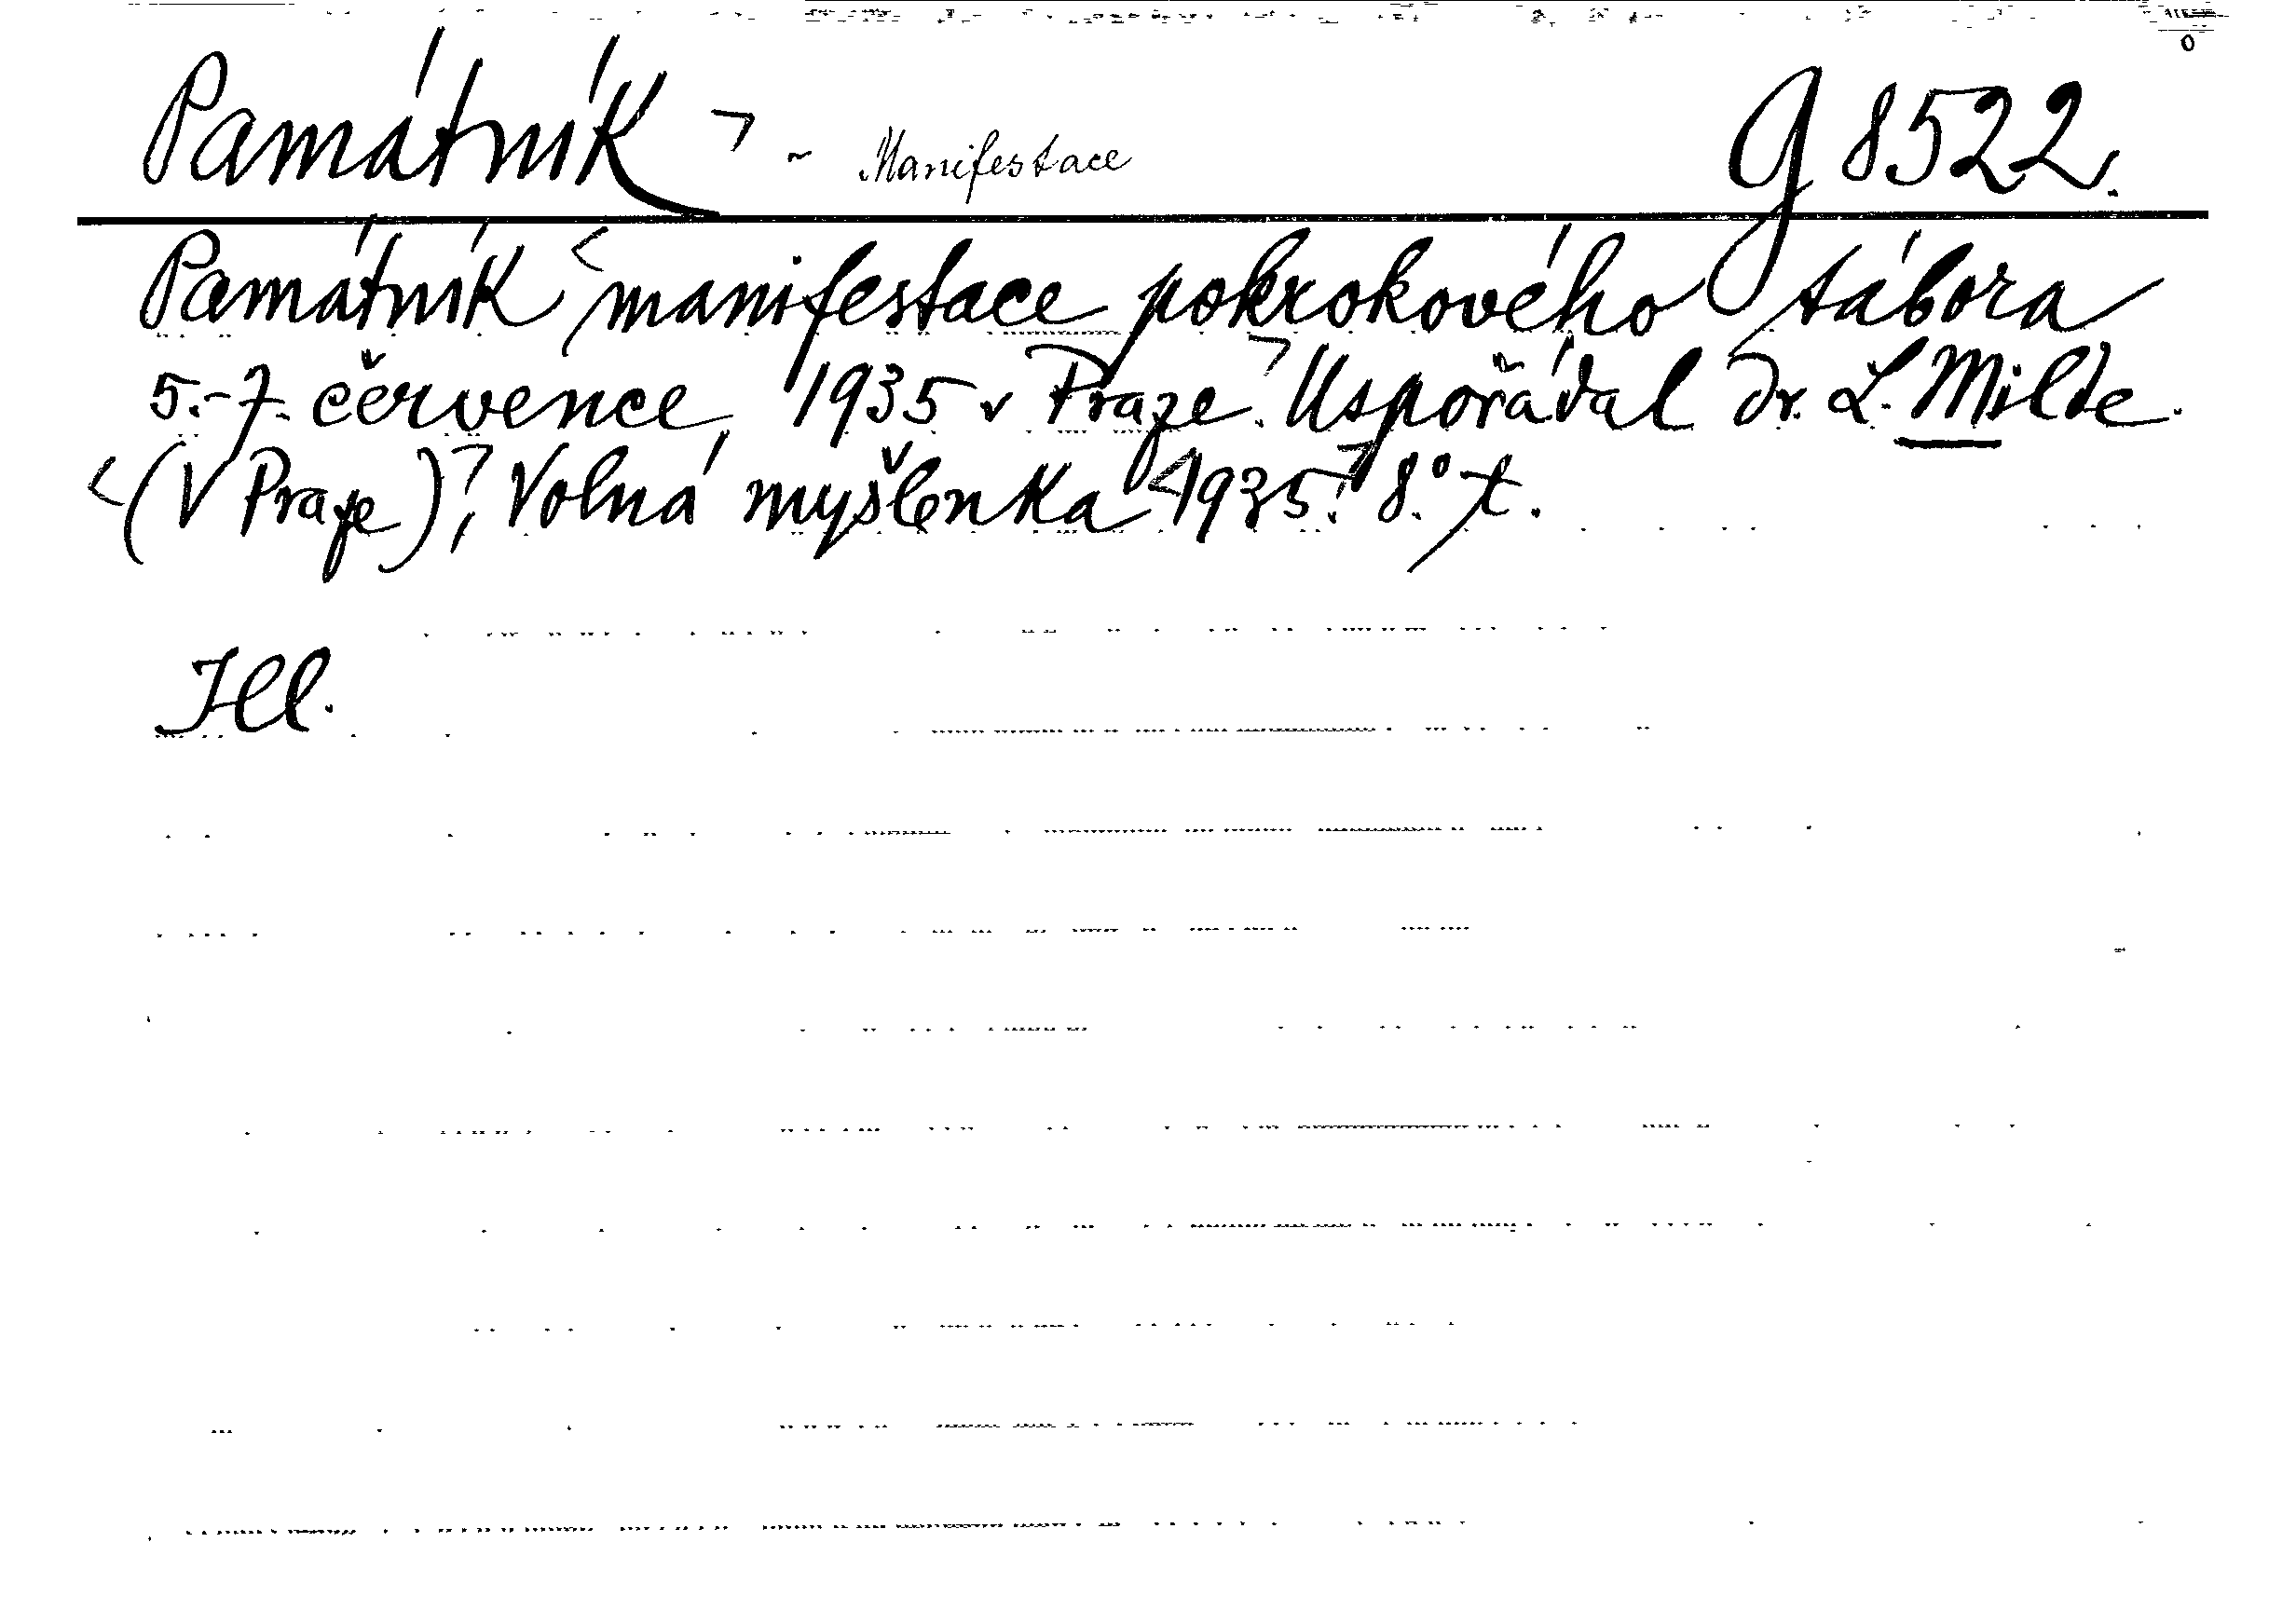 Památník ⌝ ~ Manifestace g 8522.
Památník <manifestace pokrokového tábora
5.-7. července 1935 v Praze.⌝ Uspořádal Dr. L. Milde.
<(V Praze),⌝ Volná myšlenka <1935.⌝ 8.° t.
Ill.